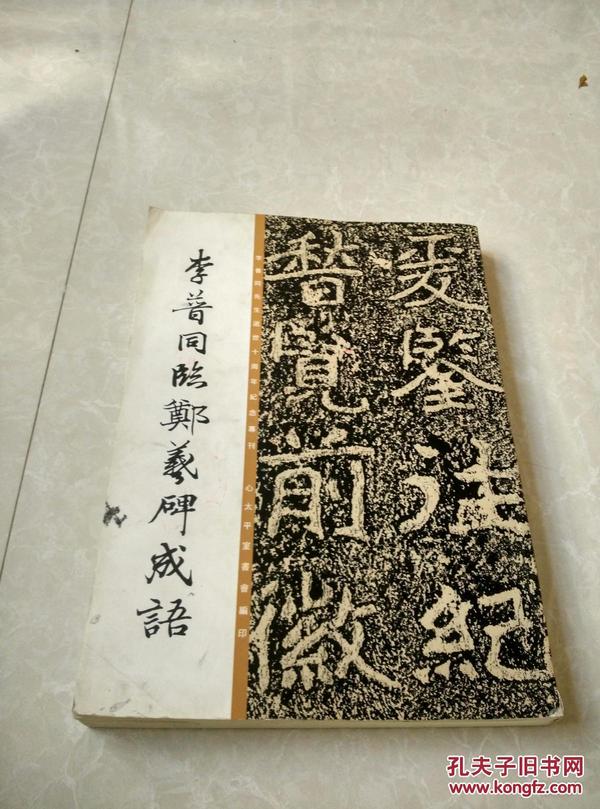 爰鑒往紀
瞀覽前徽
李普同先生逝世十周年紀念專刊 心太平室書會編印
李普同臨鄭羲碑成語
孔夫子旧书网
www.kongfz.com